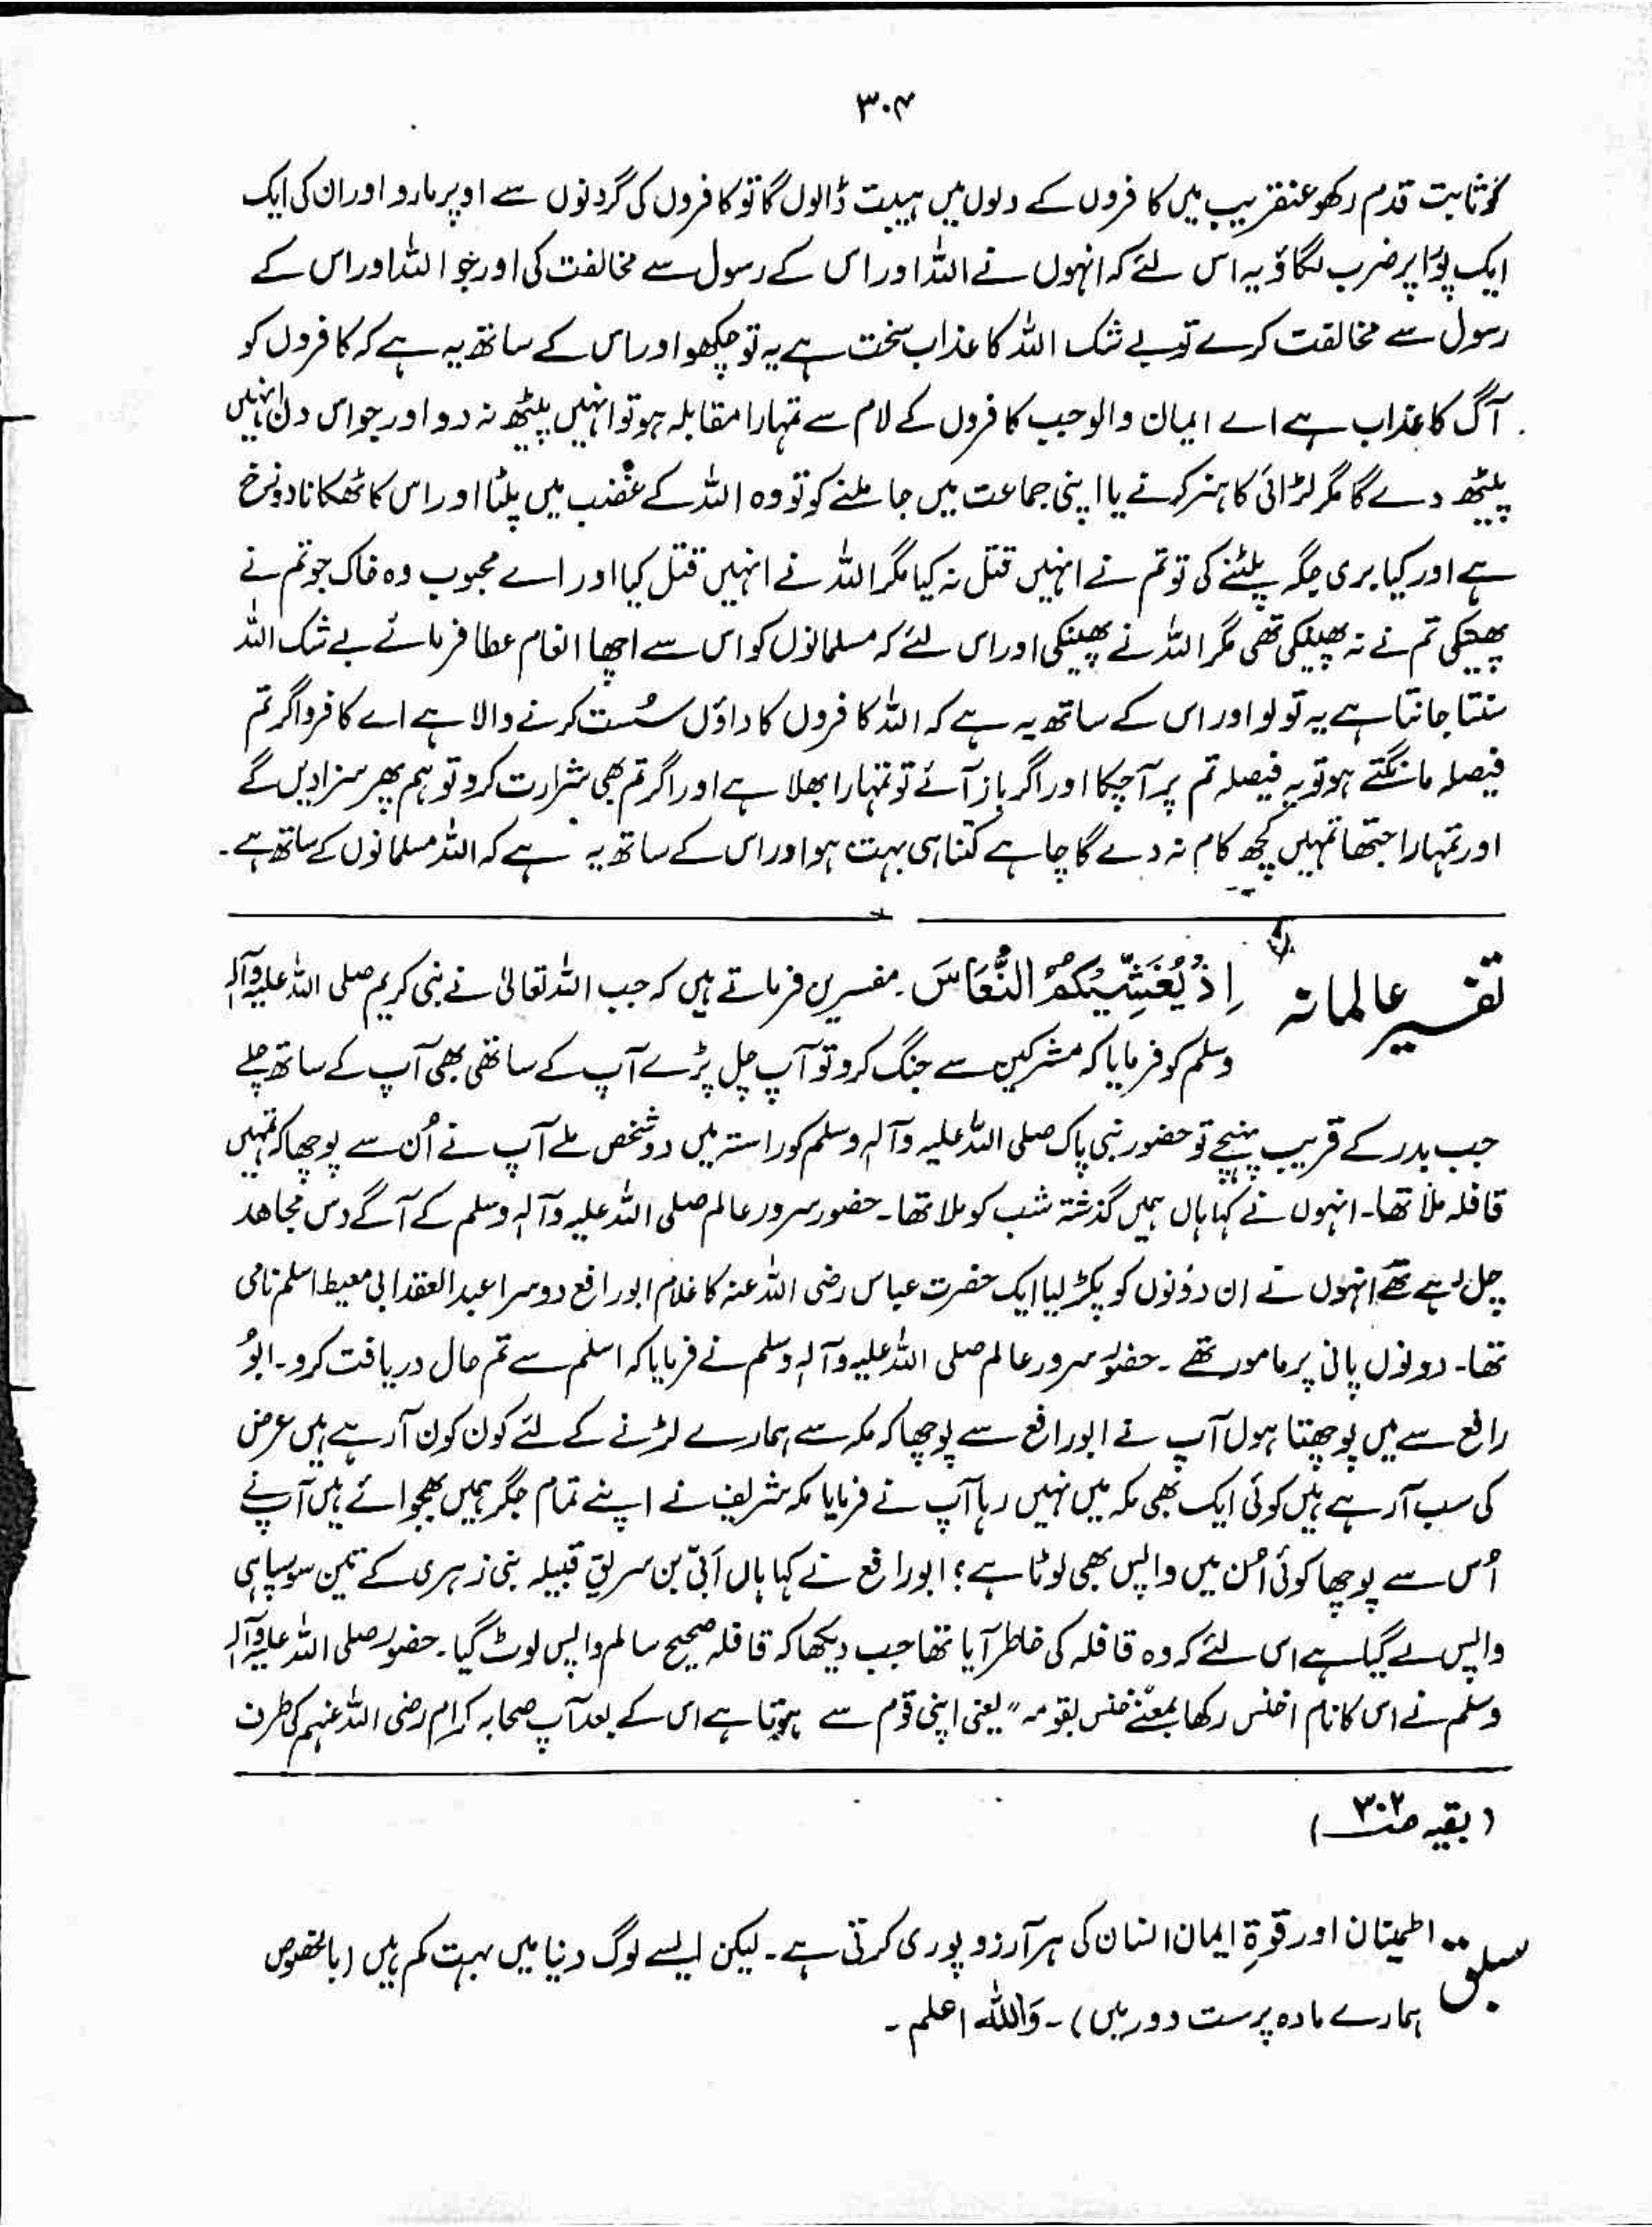 ۳۰۴
کو ثابت قدم رکھو عنقریب میں کافروں کے دلوں میں ہیبت ڈالوں گا تو کافروں کی گردنوں سے اوپر مارو اور ان کی ایک
ایک پور پر ضرب لگاؤ یہ اس لئے کہ انہوں نے اللہ اور اس کے رسول سے مخالفت کی اور جو اللہ اور اس کے
رسول سے مخالفت کرے تو بے شک اللہ کا عذاب سخت ہے یہ تو چکھو اور اس کے ساتھ یہ ہے کہ کافروں کو
آگ کا عذاب ہے اے ایمان والو جب کافروں کے لام سے تمہارا مقابلہ ہو تو انہیں پیٹھ نہ دو اور جو اس دن انہیں
پیٹھ دے گا مگر لڑائی کا ہنر کرنے یا اپنی جماعت میں جا ملنے کو تو وہ اللہ کے غضب میں پلٹا اور اس کا ٹھکانا دوزخ
ہے اور کیا بری جگہ پلٹنے کی تو تم نے انہیں قتل نہ کیا مگر اللہ نے انہیں قتل کیا اور اے محبوب وہ خاک جو تم نے
پھینکی تم نے نہ پھینکی تھی مگر اللہ نے پھینکی اور اس لئے کہ مسلمانوں کو اس سے اچھا انعام عطا فرمائے بے شک اللہ
سنتا جانتا ہے یہ تو لو اور اس کے ساتھ یہ ہے کہ اللہ کافروں کا داؤں سُست کرنے والا ہے اے کافرو اگر تم
فیصلہ مانگتے ہو تو یہ فیصلہ تم پر آچکا اور اگر باز آئے تو تمہارا بھلا ہے اور اگر تم بھی شرارت کرو تو ہم پھر سزا دیں گے
اور تمہارا جتھا تمہیں کچھ کام نہ دے گا چاہے کتنا ہی بہت ہو اور اس کے ساتھ یہ ہے کہ اللہ مسلمانوں کے ساتھ ہے۔
تفسیر عالمانہ اِذْ یُغَشِّیْکُمُ النُّعَاسَ ۔ مفسرین فرماتے ہیں کہ جب اللہ تعالیٰ نے نبی کریم صلی اللہ علیہ وآلہ
وسلم کو فرمایا کہ مشرکین سے جنگ کرو تو آپ چل پڑے آپ کے ساتھی بھی آپ کے ساتھ چلے
جب بدر کے قریب پہنچے تو حضور نبی پاک صلی اللہ علیہ وآلہ وسلم کو راستہ میں دو شخص ملے آپ نے اُن سے پوچھا کہ تمہیں
قافلہ ملا تھا۔ انہوں نے کہا ہاں ہمیں گذشتہ شب کو ملا تھا۔ حضور سرور عالم صلی اللہ علیہ وآلہ وسلم کے آگے دس مجاھد
چل رہے تھے انہوں نے ان دونوں کو پکڑ لیا ایک حضرت عباس رضی اللہ عنہ کا غلام ابو رافع دوسرا عبد العقد ابی معیط اسلم نامی
تھا۔ دونوں پانی پر مامور تھے ۔ حضور سرور عالم صلی اللہ علیہ وآلہ وسلم نے فرمایا کہ اسلم سے تم حال دریافت کرو۔ ابو
رافع سے میں پوچھتا ہوں آپ نے ابورافع سے پوچھا کہ مکہ سے ہمارے لڑنے کے لئے کون کون آرہے ہیں عرض
کی سب آرہے ہیں کوئی ایک بھی مکہ میں نہیں رہا آپ نے فرمایا مکہ شریف نے اپنے تمام جگر ہمیں بھجوائے ہیں آپ نے
اُس سے پوچھا کوئی اُن میں واپس بھی لوٹا ہے؟ ابورافع نے کہا ہاں اَبیّ بن سریق قبیلہ بنی زہری کے تین سو سپاہی
واپس لے گیا ہے اس لئے کہ وہ قافلہ کی خاطر آیا تھا جب دیکھا کہ قافلہ صحیح سالم واپس لوٹ گیا۔ حضور صلی اللہ علیہ وآلہ
وسلم نے اس کا نام اخنس رکھا بمعنٰے خنس بقومہ" یعنی اپنی قوم سے ہوتا ہے اس کے بعد آپ صحابہ کرام رضی اللہ عنہم کی طرف
(بقیہ صـ ۳۰۲)
سبق ۔ اطمینان اور قوۃِ ایمان انسان کی ہر آرزو پوری کرتی ہے ۔ لیکن ایسے لوگ دنیا میں بہت کم ہیں (بالخصوص
ہمارے مادہ پرست دور میں)۔ وَاللہُ اعلم ۔